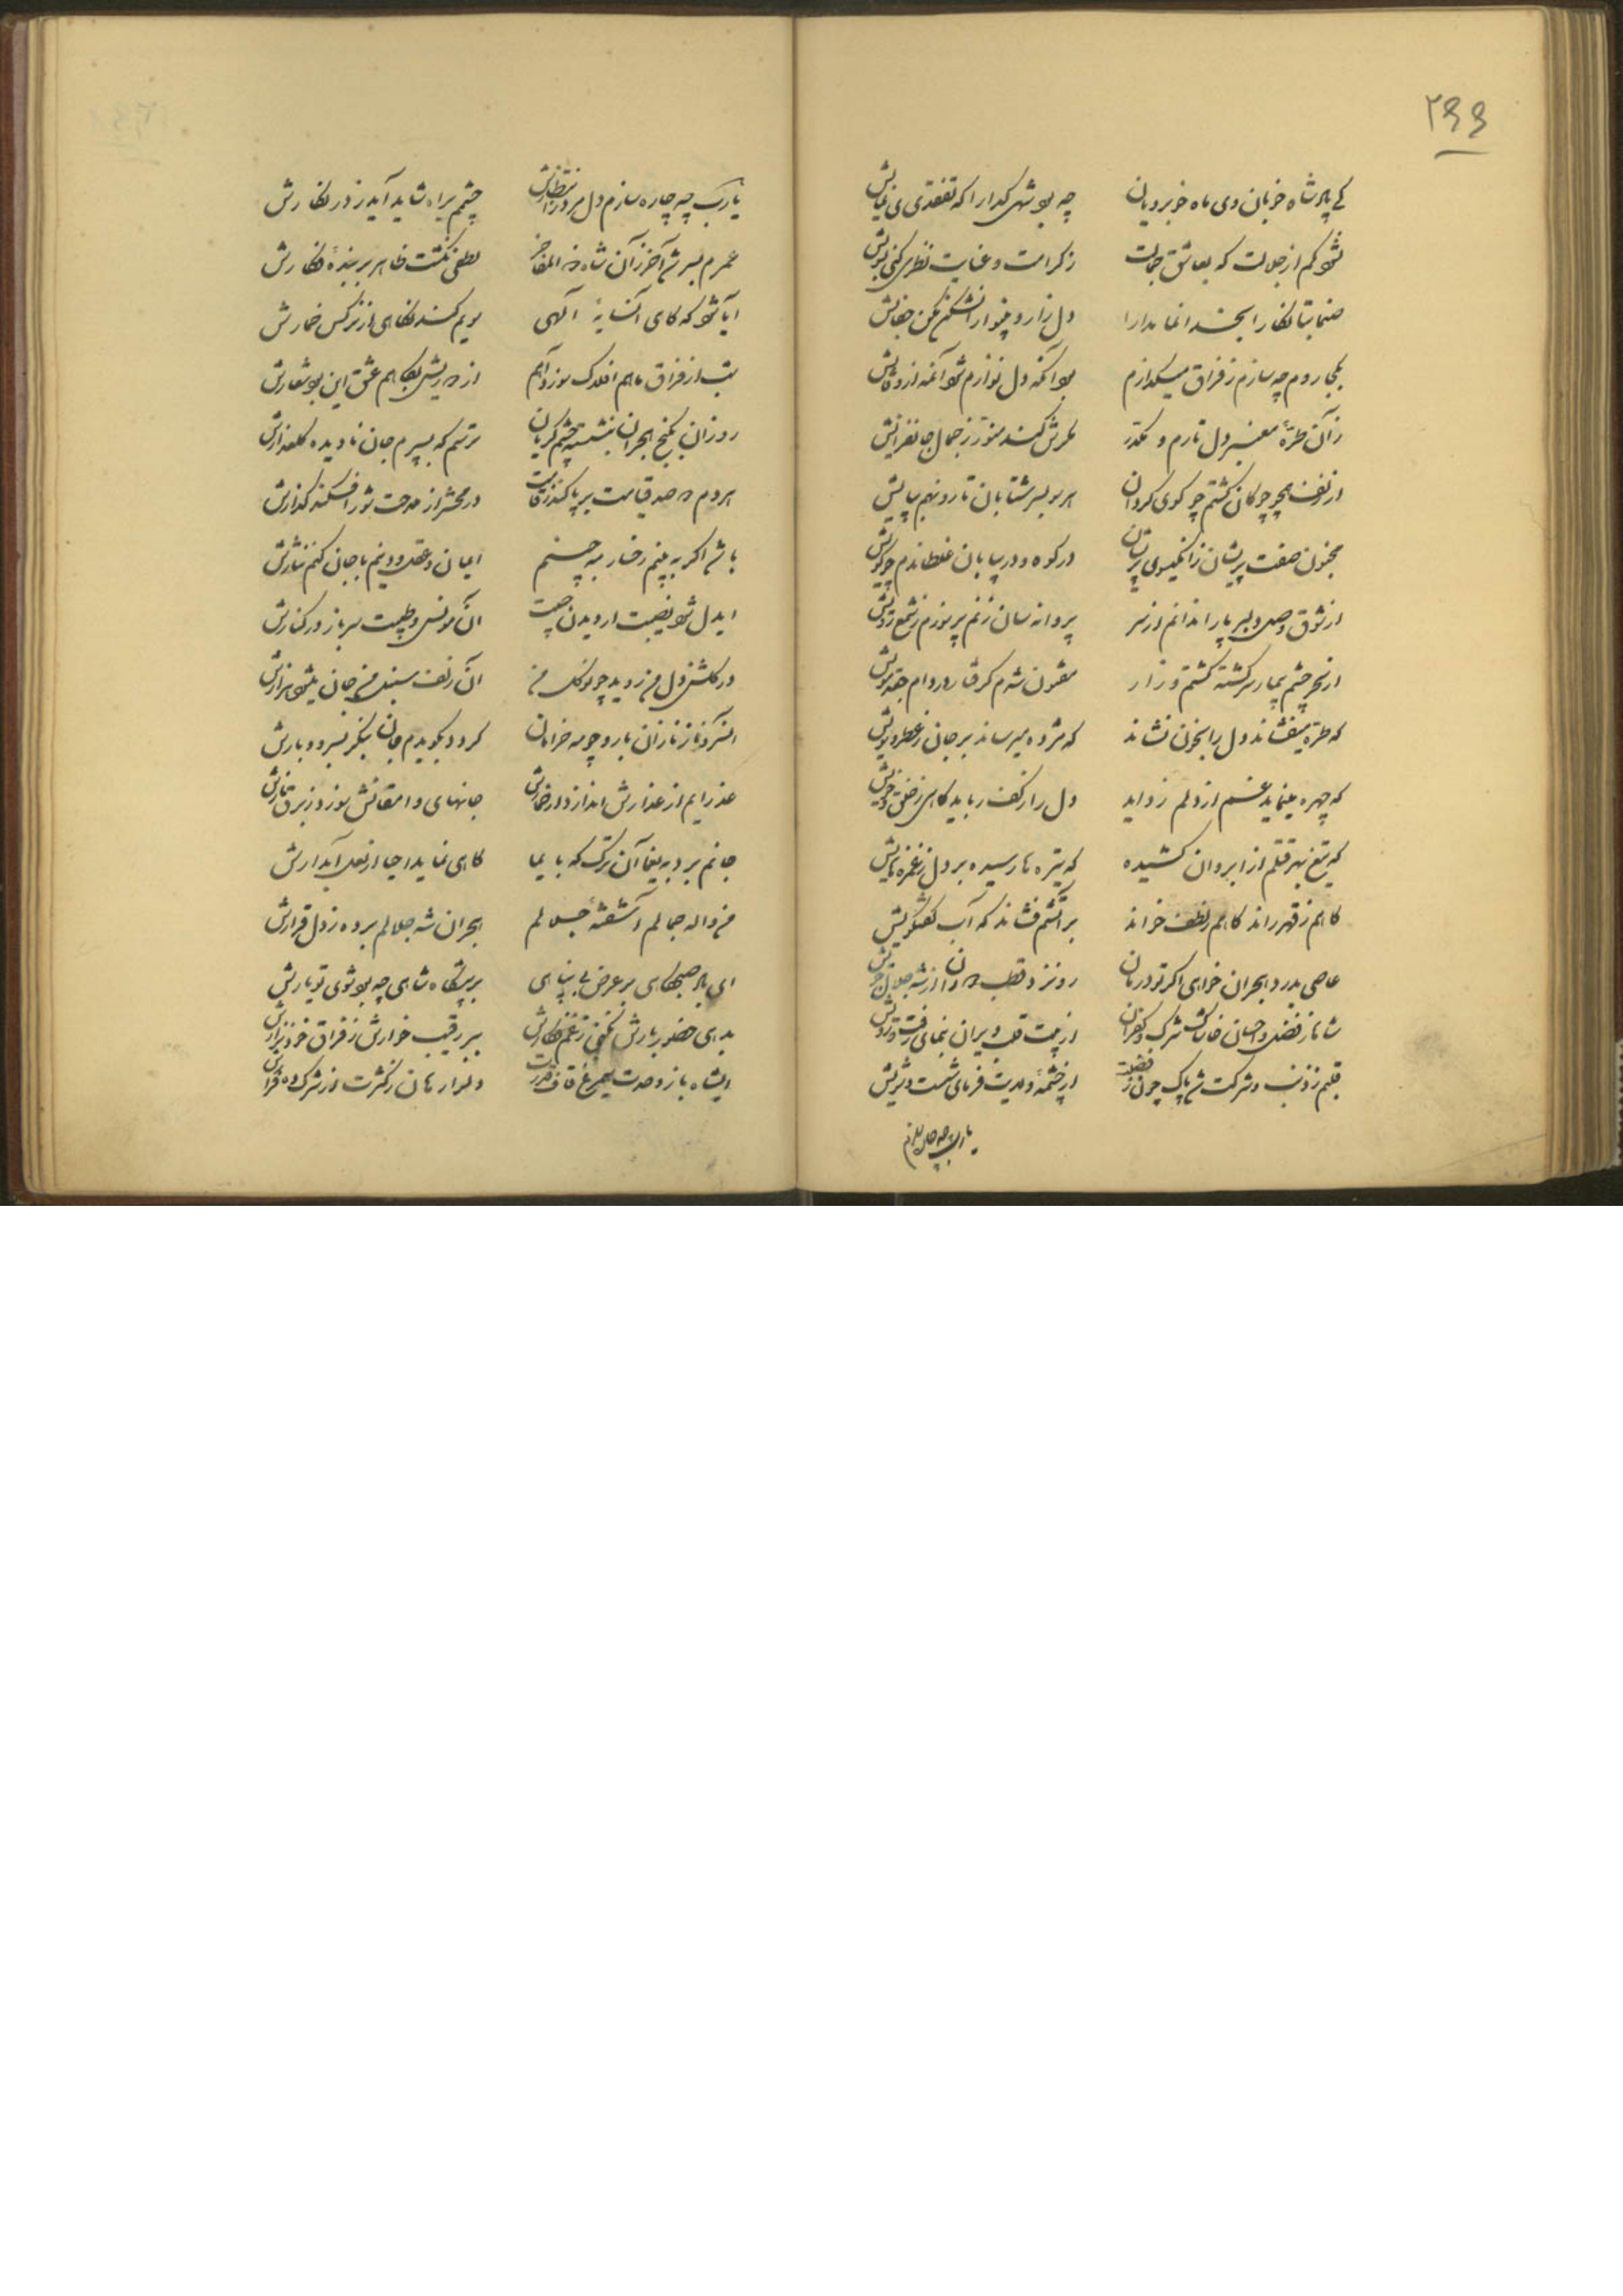 ۲۶۶
ای پادشاه خوبان وی ماه خوبرویان چه بود شهی گدا را که تفقدی نمایش
شود کم از جلالت که بعاشق جمالت ز کرامت و عنایت نظری کنی بسویش
صنما بتا نگارا بخدا نما مدارا دل زار و بینوا را مشکن مکن جفایش
بکجا روم چه سازم ز فراق میگدازم بود آنکه دل نوازم شود آگه از وفایش
زان طرّهٔ معنبر دل تارم و مکدّر کندش منور ز جمال جانفزایش
از زلف همچو چوگان گشتم چو گوی گردان هر سو بسر شتابان تا رو نهم بپایش
مجنون صفت پریشان زان گیسوی پریشان در کوه و در بیابان غلطاندم چو گویش
از شوق وصل دلبر پا را ندانم از سر پروانه سان زنم پر سوزم ز شمع رویش
از سحر چشم بیمار سرگشته گشتم و زار مفتون شدم گرفتار در دام جعد مویش
که طره میفشاند دل را بخون نشاند که مژده میرساند بر جان ز عطر بویش
که چهره مینماید غم از دلم زداید دل را ز کف رباید گاهی ز خلق و خویش
که تیغ بهر قتلم از ابروان کشیده که تیرها رسیده بر دل ز غمزه‌هایش
گاهم ز قهر راند گاهم بلطف خواند بر آتشم فشاند که آب گفتگویش
عاصی بدرد هجران خواهی اگر تو درمان رو نزد قطب دوران از شه جلال جویش
شاها ز فضل و احسان خاشاک شرک و کفران از بیت قلب ویران بنمای رفت و رویش
قلبم ز ذنب و شرکت شد پاک چون ز فضلت از چشمهٔ ولایت فرمای شست و شویش
یارب چه چاره سازم
یارب چه چاره سازم دل مرد در انتظارش چشمم براه شاید آید ز در نگارش
عمرم بسر شد آخر زان شاه ذو المفاخر لطفی نگشت ظاهر بر بندهٔ فکارش
آیا شود که گاهی آنسایهٔ الهی سویم کند نگاهی از نرگس خمارش
شب از فراق ماهم افلاک سوزد آهم از درویش نکاهم عشق این بود شعارش
روزان بکنج هجران بنشسته چشم گریان ترسم که بسپرم جان نادیده گلعذارش
هر دم دو صد قیامت بر پا کند ز قامت در محشر از مدحت شور افکند گذارش
باشد اگر به بینم رخسار مه جبینم ایمان و عقل و دینم با جان کنم نثارش
ایدل شود نصیبت از دیدن حبیبت آن مونس و طبیبت سر باز در کنارش
در گلشن دل من روید چو نوگل من آن زلف سنبل من جان بلبل هزارش
آن سرو ناز نازان با رو چو مه خرامان گردد بگویدم هان بنگر بسرو و بارش
عذرایم از عذارش اندازد ار خمارش جانهای وامقانش سوزد ز برق نارش
جانم برد به یغما آن ترک که بایما گاهی نماید احیا از لعل آبدارش
من واله جمالم آشفتهٔ جلالم هجران شه جلالم برده ز دل قرارش
ای پادشه پگاهی بر عرض بی پناهی بر پیشگاه شاهی چه بود شوی تو یارش
بدهی حضور بارش نکنی ز غم فکارش بر رقیب خوارش ز فراق خود نزارش
ایشاه باز وحدت سیمرغ قاف قدرت دلدار هان ز کثرت از شرک ده فرارش